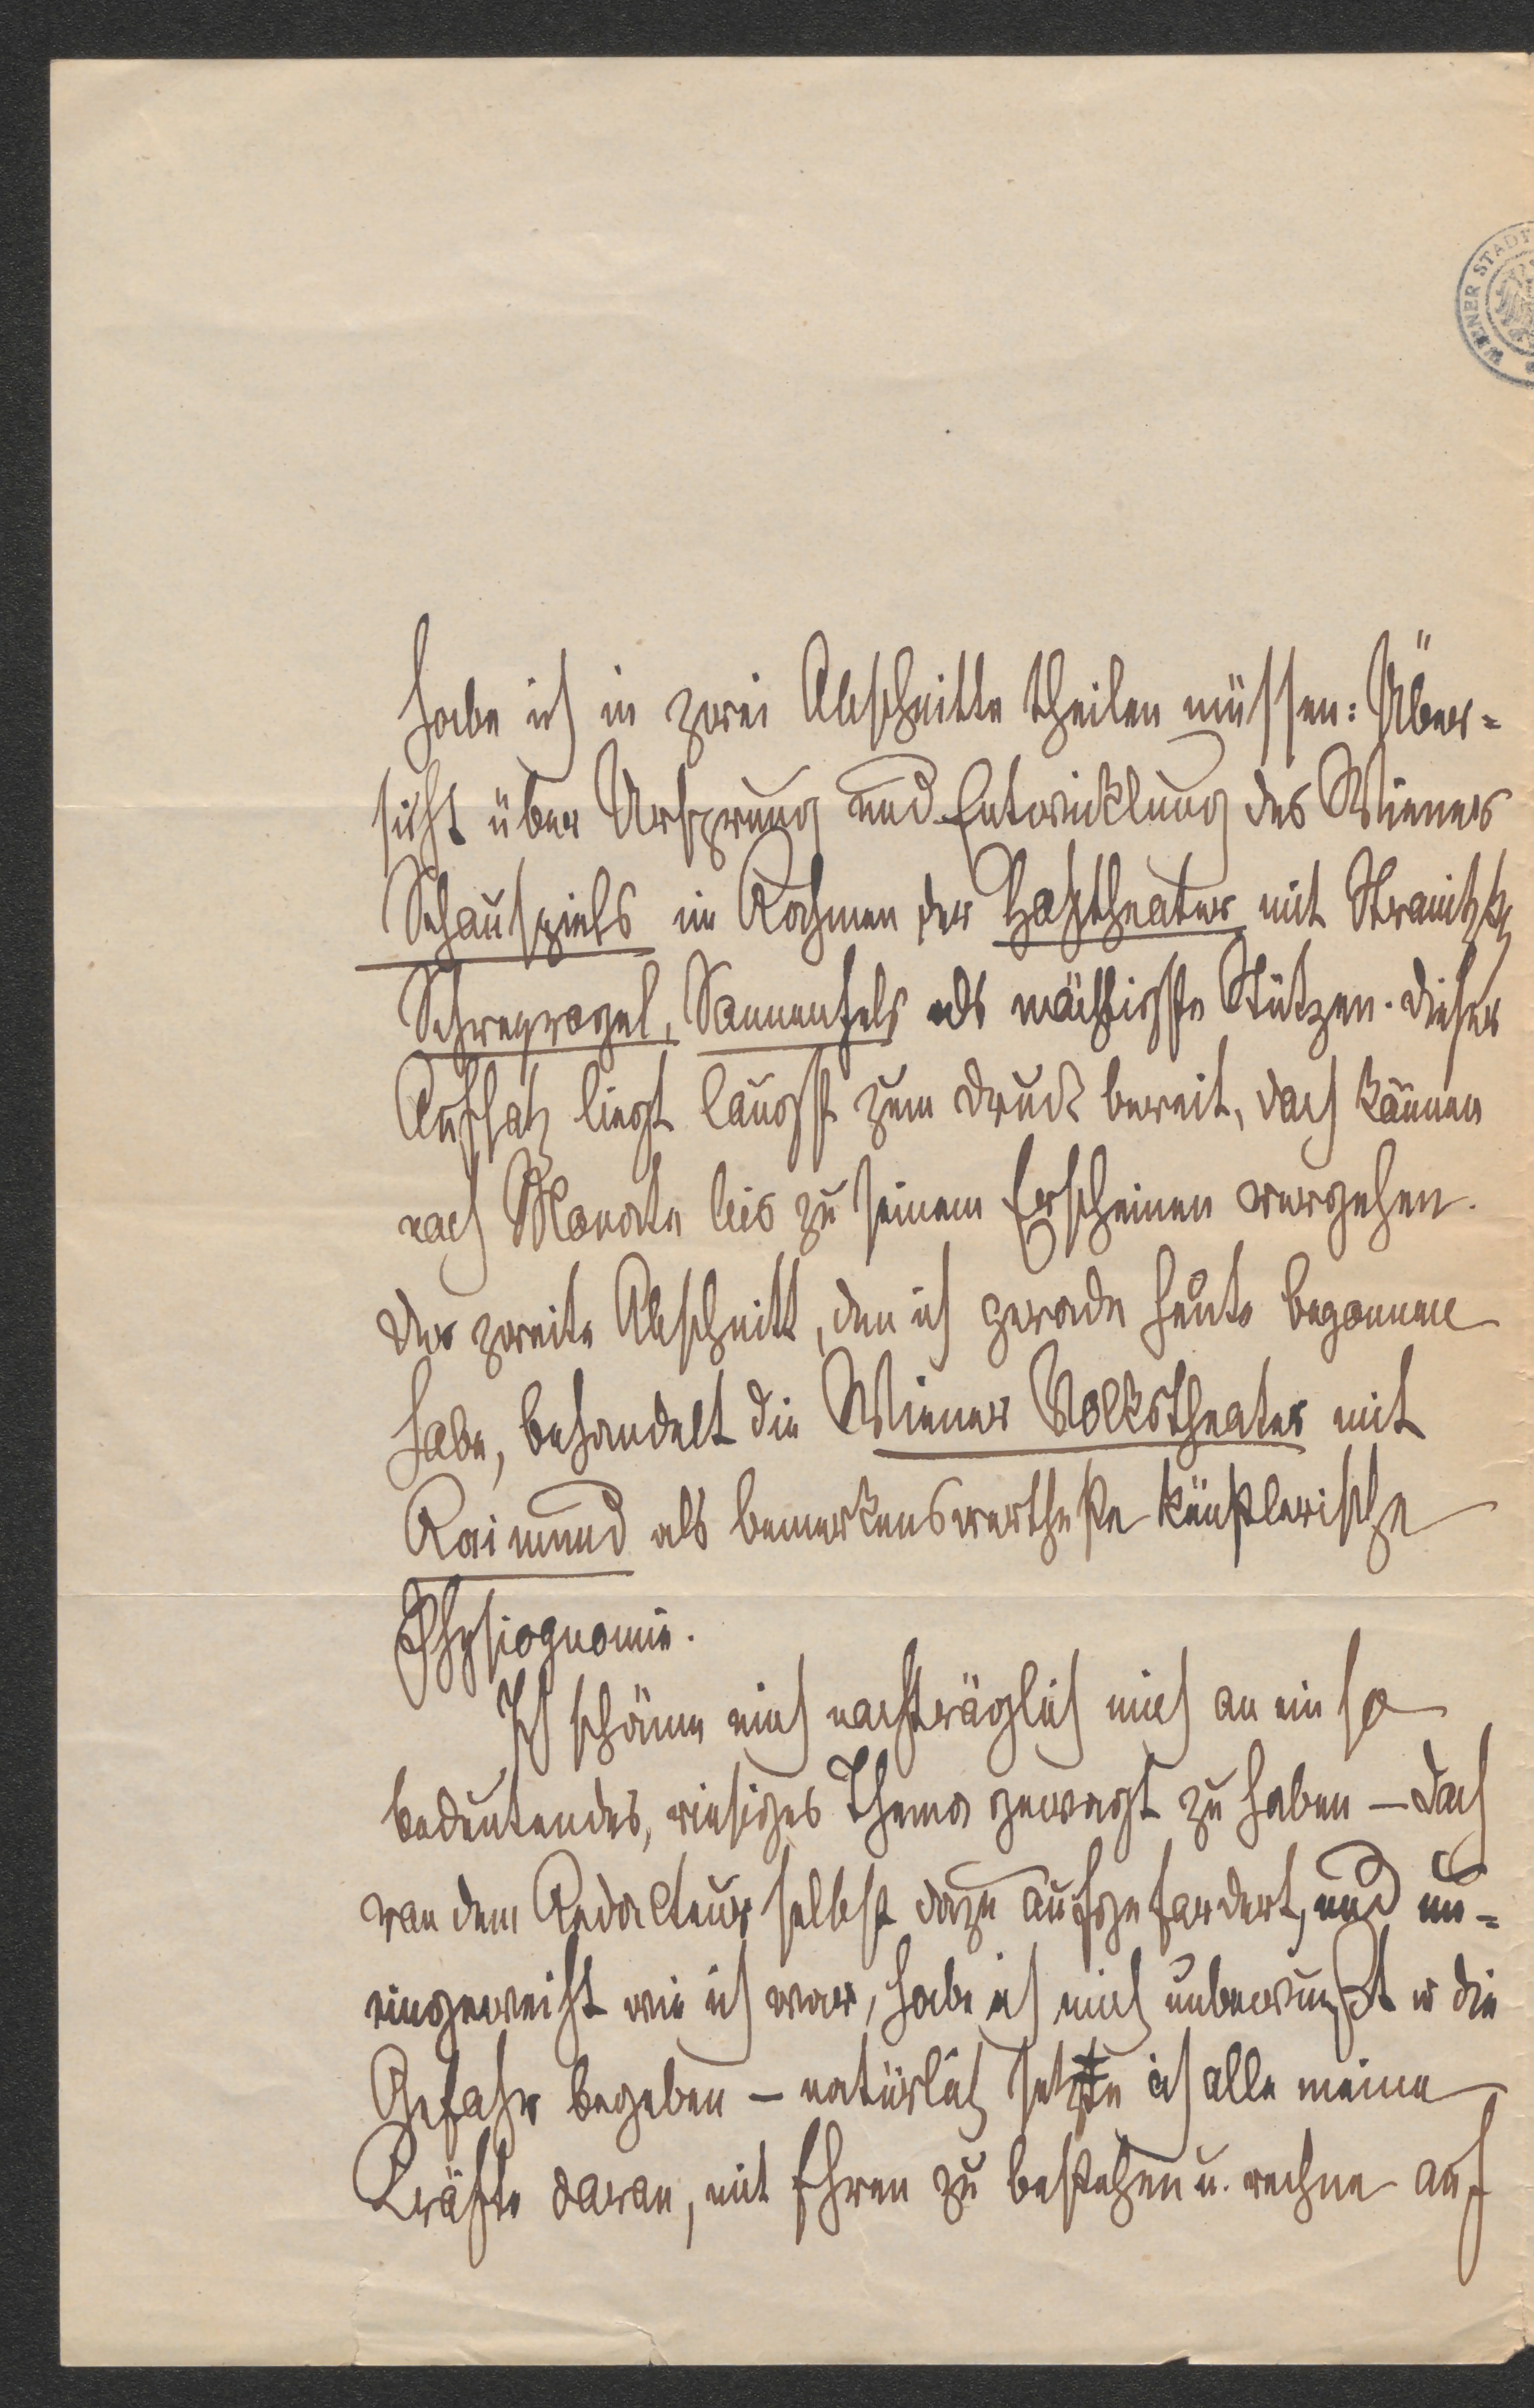 WIENER STADT
habe ich in zwei Abschnitte theilen müssen: Über-
sicht über Ursprung und Entwicklung des Wiener
Schauspiels im Rahmen der Hoftheater mit Stranitzky
Schreyvogel, Sonnenfels als mächtigste Stützen. Dieser
Aufsatz liegt längst zum Druck bereit, doch können
noch Monate bis zu seinem Erscheinen vergehen.
Der zweite Abschnitt, den ich gerade heute begonnen
habe, behandelt die Wiener Volkstheater mit
Raimund als bemerkenswertheste künstlerische
Physiognomie.
Ich schäme mich nachträglich mich an ein so
bedeutendes, riesiges Thema gewagt zu haben – doch
von dem Redacteur selbst dazu aufgefordert, und un-
eingeweiht wie ich war, habe ich mich unbewußt in die
Gefahr begeben – natürlich setzte ich alle meine
Kräfte daran, mit Ehren zu bestehen u. rechne auf